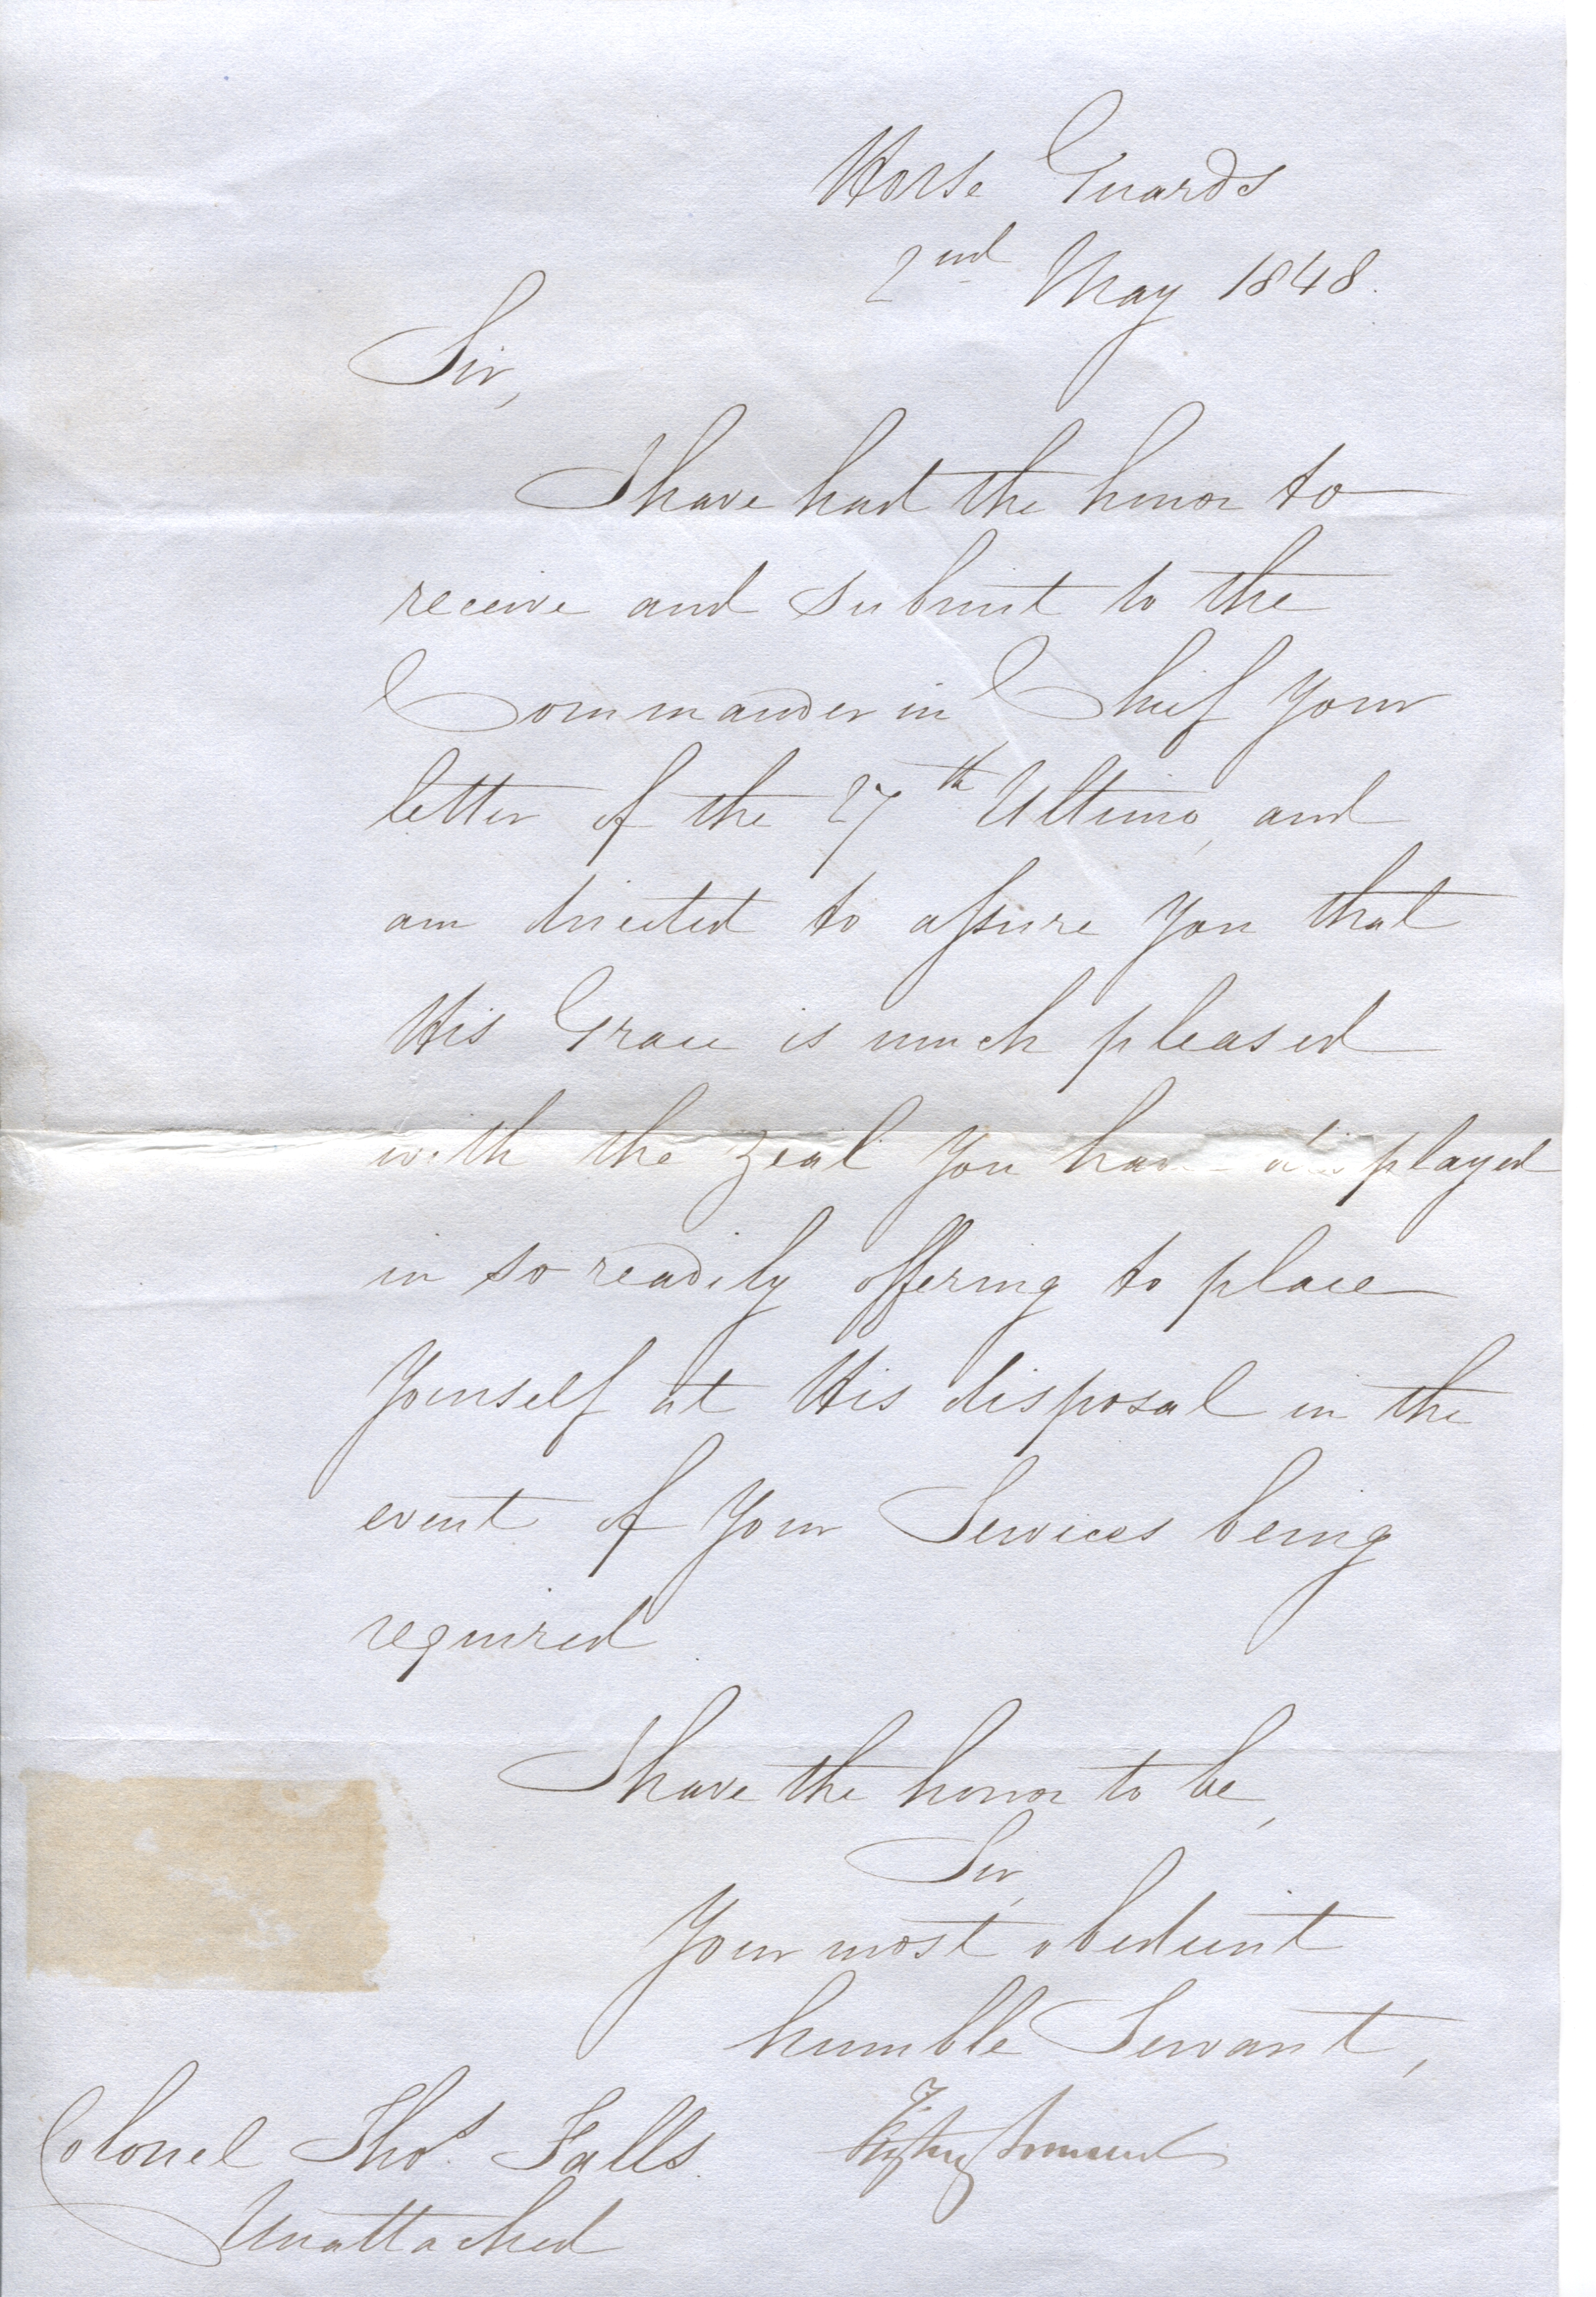 Horse Guards
2nd May 1848.
Sir,
I have had the honor to
receive and submit to the
Commander in Chief your
letter of the 27th Ultimo, and
am directed to assure you that
His Grace is much pleased
with the zeal you have displayed
in so readily offering to place
yourself at His disposal in the
event of your Services being
required.
I have the honor to be,
Sir,
Your most obedient
humble Servant,
Fitzroy Somerset
Colonel Thos. Falls.
Unattached